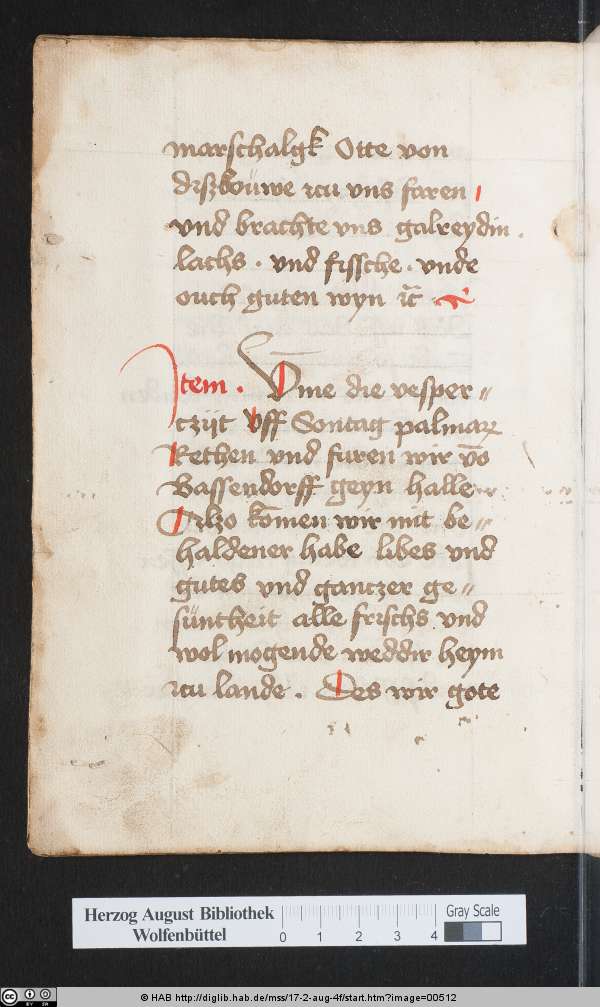 marschalgk Otte von
dißkoüwe zcu vns faren
vnd brachte vns galreydin .
lachs · vnd fissche · vnde
ouch guten wyn ꝛc̄
Item . Vm̄e die vesper〃
czijt Vff Sontag palmaꝝ
Rethen vnd furen wir vō
Bassendorff geyn halle
Alzo kōmen wir mit be〃
haldener habe libes vnd
gutes vnd ganczer ge〃
süntheit alle frischs vnd
wol mogende weddir heym
zcu lande . Des wir gote
Herzog August Bibliothek
Wolfenbüttel
0 1 2 3 4
Gray Scale
© HAB http://diglib.hab.de/mss/17-2-aug-4f/start.htm?image=00512